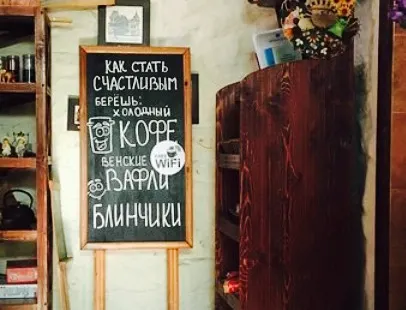 КАК СТАТЬ
СЧАСТЛИВЫМ
БЕРЁШЬ:
ХОЛОДНЫЙ
КОФЕ
ВЕНСКИЕ
WiFi
ВАФЛИ
БЛИНЧИКИ